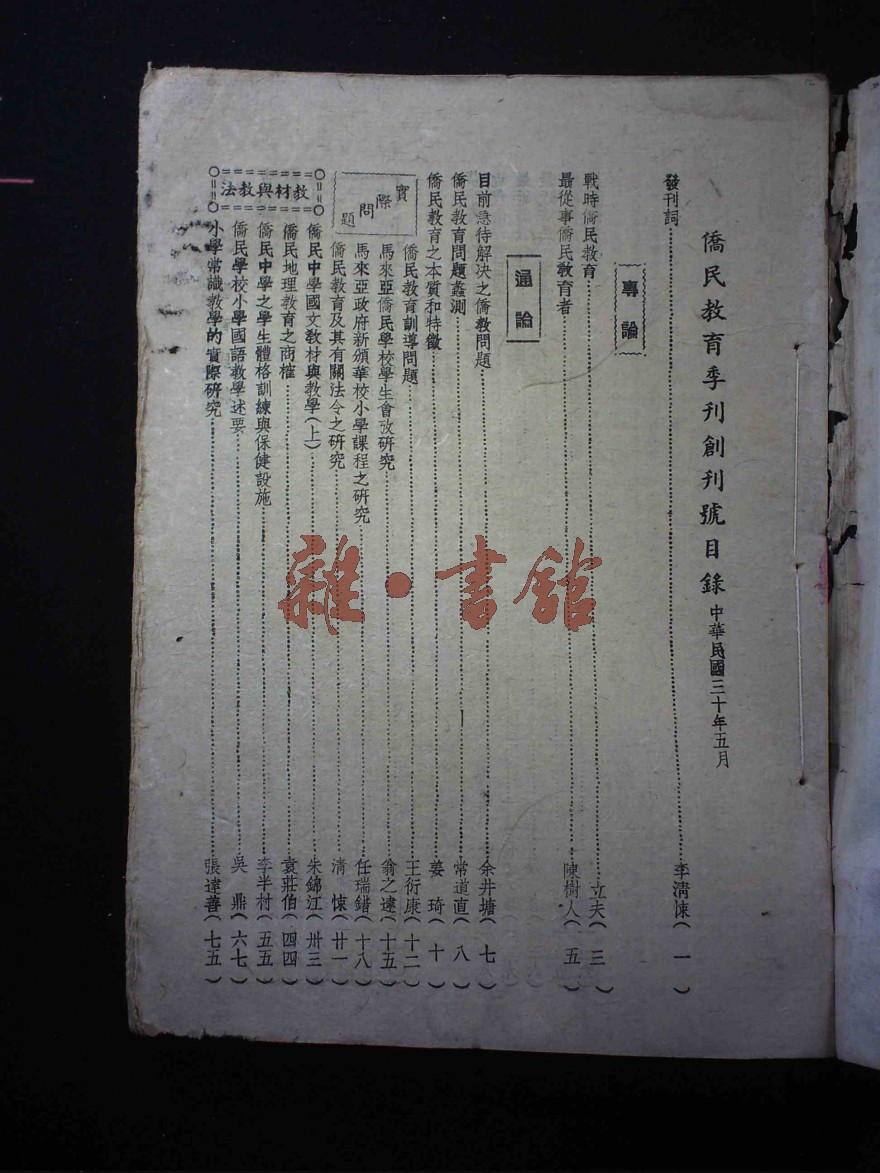 僑民教育季刊創刊號目錄 中華民國三十年五月
發刊詞……李清悚（一）
專論
戰時僑民教育……立夫（三）
最從事僑民教育者……陳樹人（五）
通論
目前急待解决之僑教問題……余井塘（七）
僑民教育問題蠡測……常道直（八）
僑民教育之本質和特徵……姜琦（十）
實際問題
僑民教育訓導問題……王衍康（十二）
馬來亞僑民學校學生會攷研究……翁之達（十五）
馬來亞政府新頒華校小學課程之研究……任瑞錯（十八）
僑民教育及其有關法令之研究……清悚（廿一）
教材與教法
僑民中學國文教材與教學（上）……朱錦江（卅三）
僑民地理教育之商榷……袁莊伯（四四）
僑民中學之學生體格訓練與保健設施……李半村（五五）
僑民學校小學國語教學述要……吳鼎（六七）
小學常識教學的實際研究……張達善（七五）
雜·書館